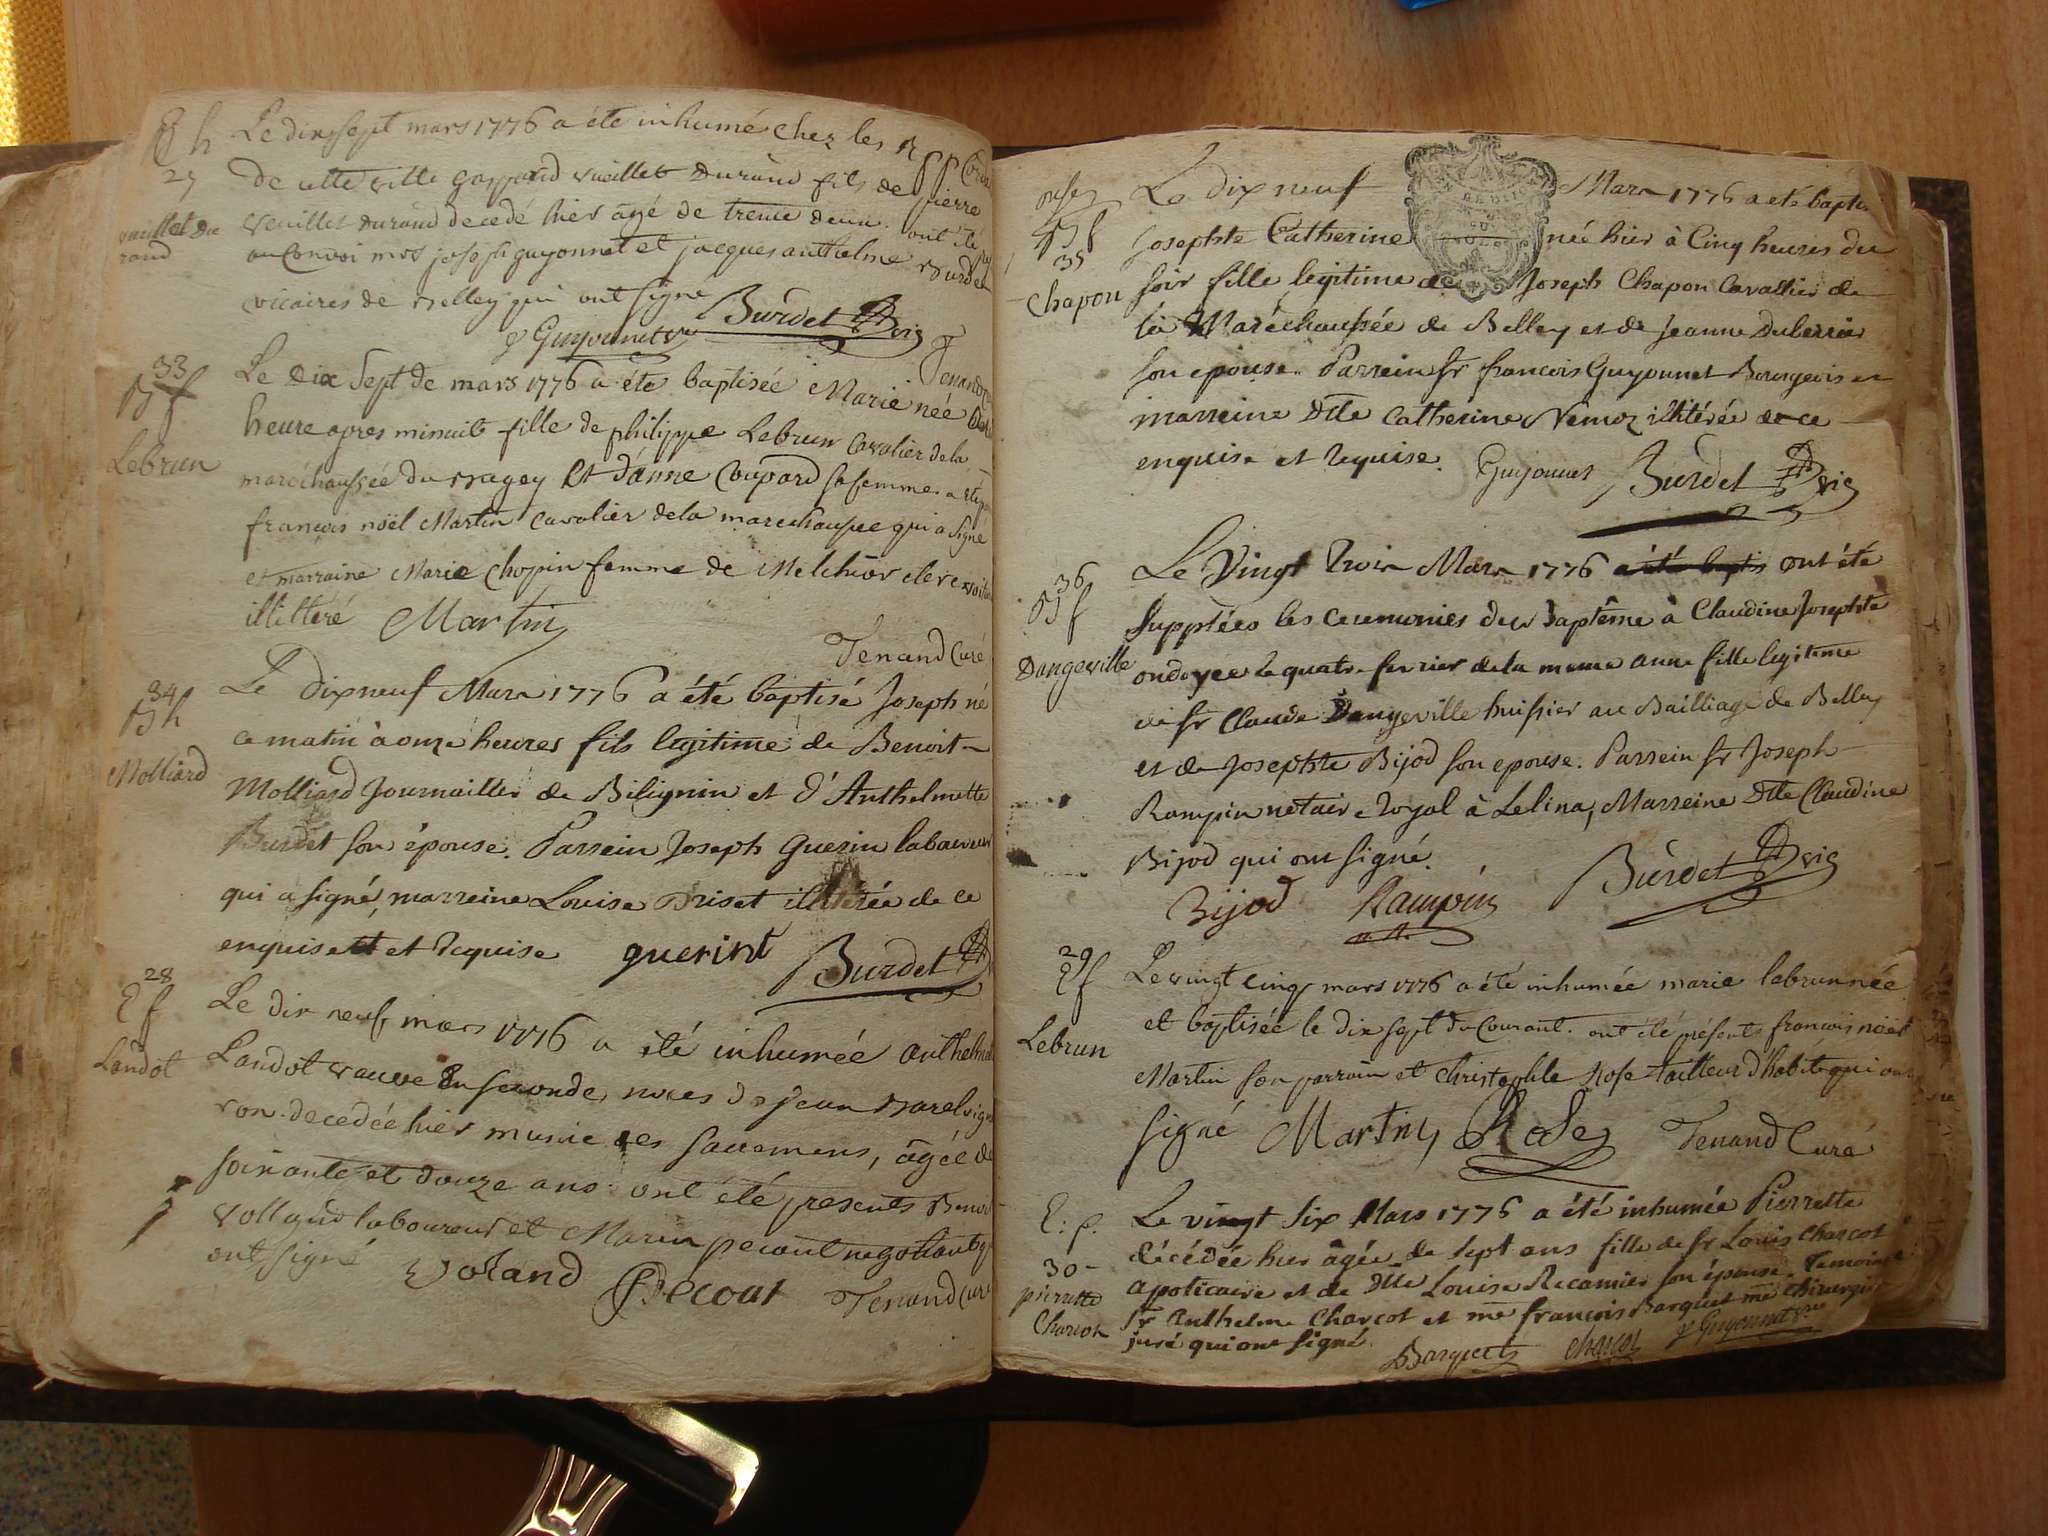 Eh
27
vuillet du
rand
Le dix sept mars 1776 a été inhumé chez les RR PP
de cette ville gaspard vuillet Durand fils de pierre
veuillet Durand decedé hier âgé de trente deux ont été
au Convoi mrs joseph guyonnet et jacques anthelme Burdet
vicaires de Belley qui ont signé
Guyonnet vic Burdet vic
33
Bf
Lebrun
Le dix Sept de mars 1776 a éte baptisée Marie née
heure apres minuit fille de philippe Lebrun Cavalier de la
maréchaussée du Bugey Et d'anne Coupard sa femme
francois noël Martin Cavalier de la marechaussee qui a signé
et marraine Marie Chopin femme de Melchior clerc
illitteré Martin
Tenand Curé
34
Bh
Molliard
Le dix neuf Mars 1776 a été baptisé Joseph né
ce matin à onze heures fils legitime de Benoit
Molliard Journaillier de Bilignin et d'Anthelmette
Burdet son épouse. Parrein Joseph Guerin laboureur
qui a signé, marreine Louise Briset illiterée de ce
enquise et et requise guerint Burdet
28
Ef
Landot
Le dix neuf mars 1776 a été inhumée anthelme
Landot vauve En seconde noces de jean Barel vigne
ron decedée hier munie des sacremens, âgée de
soixante et douze ans ont été presents Benoit
Volland laboureur et Marin pecout negotiant qui
ont signé Voland Pecout Tenand Curé
onse
Bf
35
Chapon
Le dix neuf Mars 1776 a eté baptisée
Josephte Catherine née hier à Cinq heures du
soir fille legitime de Joseph Chapon Cavallier de
la Maréchaussée de Belley et de Jeanne Duberier
son epouse. Parrein sr francois Guyonnet Bourgeois et
marreine Dlle Catherine Vemoz illiterée de ce
enquise et requise. Guyonnet Burdet vic
36
Bf
Dangeville
Le Vingt Trois Mars 1776 a été baptis ont été
Supplées les Ceremonies du Baptême à Claudine Josephte
ondoyée le quatre fevrier de la meme anne fille legitime
de sr Claude Dangeville huissier au Bailliage de Belley
et de Josephte Bijod son epouse. Parrein sr Joseph
Rampin notaire Royal à Lelina, Marreine Dlle Claudine
Bijod qui ont signé. Burdet vic
Bijod Rampin
29
Ef
Lebrun
Le vingt cinq mars 1776 a été inhumée marie lebrun née
et baptisée le dix sept du Courant. ont été présents francois noël
Martin son parrain et Christophle Rose tailleur d'habits qui ont
signé Martin Rose Tenand Curé
E: p.
30
pierrette
Charcot
Le vingt six Mars 1776 a été inhumée Pierrette
décédée hier âgée de sept ans fille de sr Louis Charcot
apoticaire et de Dlle Louise Recamier son épouse. Temoins
sr Anthelme Charcot et me francois Barquet me Chirurgien
juré qui ont signé.
Barquet Charcot Guyonnet vic